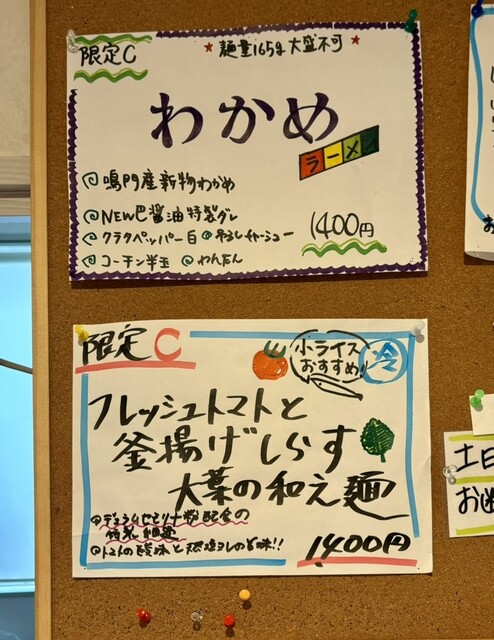 限定C
★麺量165g 大盛不可★
わかめ
ラーメン
鳴門産新物わかめ
NEW巴醤油特製ダレ
クラタペッパー白 吊るしチャーシュー
コーチン半玉 わんたん
1400円
限定C
小ライス
おすすめ!!
冷
フレッシュトマトと
釜揚げしらす
大葉の和え麺
デュラムセモリナ粉配合の
特製細麺
トマトの酸味と
1,400円
土日
お